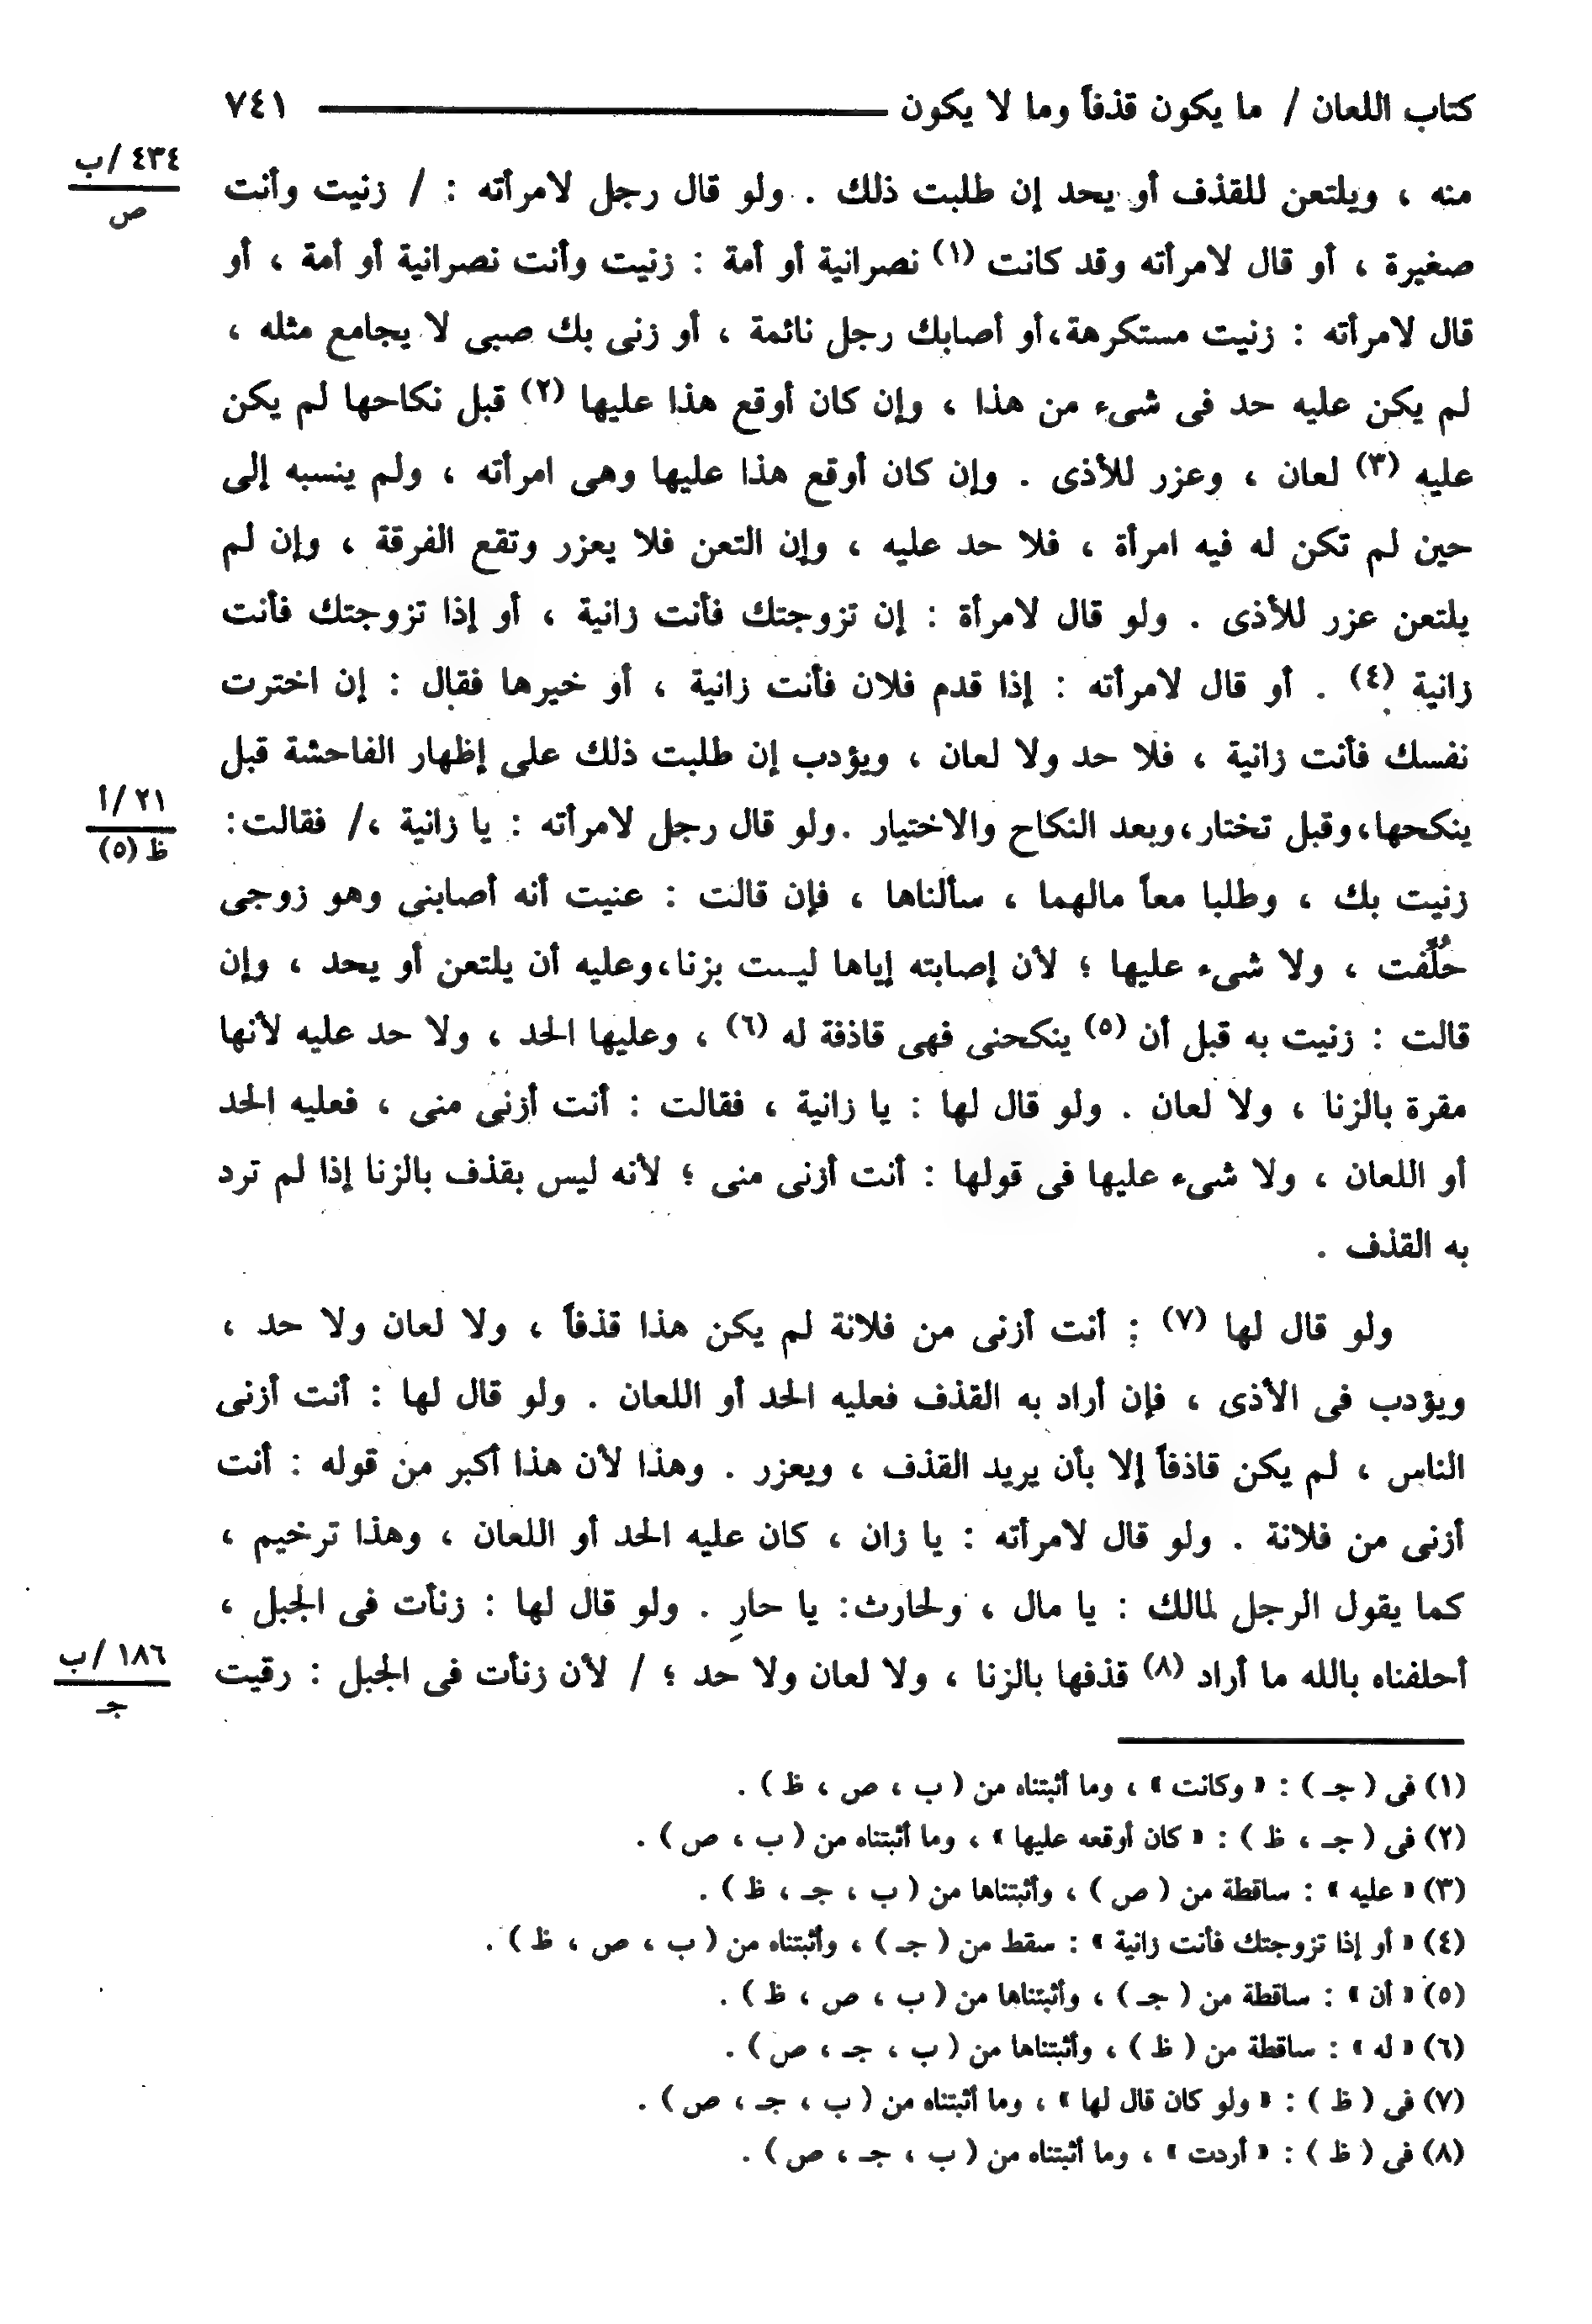 كتاب اللعان / ما يكون قذفاً وما لا يكون ٧٤١
٤٣٤ /ب
ص
منه ، ويلتعن للقذف أو يحد إن طلبت ذلك . ولو قال رجل لامرأته : / زنيت وأنت
صغيرة ، أو قال لامرأته وقد كانت (١) نصرانية أو أمة : زنيت وأنت نصرانية أو أمة ، أو
قال لامرأته : زنيت مستكرهة،أو أصابك رجل نائمة ، أو زنى بك صبى لا يجامع مثله ،
لم يكن عليه حد فى شىء من هذا ، وإن كان أوقع هذا عليها (٢) قبل نكاحها لم يكن
عليه (٣) لعان ، وعزر للأذى . وإن كان أوقع هذا عليها وهى امرأته ، ولم ينسبه إلى
حين لم تكن له فيه امرأة ، فلا حد عليه ، وإن التعن فلا يعزر وتقع الفرقة ، وإن لم
يلتعن عزر للأذى . ولو قال لامرأة : إن تزوجتك فأنت زانية ، أو إذا تزوجتك فأنت
زانية (٤) . أو قال لامرأته : إذا قدم فلان فأنت زانية ، أو خيرها فقال : إن اخترت
نفسك فأنت زانية ، فلا حد ولا لعان ، ويؤدب إن طلبت ذلك على إظهار الفاحشة قبل
ينكحها،وقبل تختار،وبعد النكاح والاختيار .ولو قال رجل لامرأته : يا زانية ،/ فقالت:
٢١ /أ
ظ (٥)
زنيت بك ، وطلبا معاً مالهما ، سألناها ، فإن قالت : عنيت أنه أصابنى وهو زوجى
حُلِّفت ، ولا شىء عليها ؛ لأن إصابته إياها ليست بزنا،وعليه أن يلتعن أو يحد ، وإن
قالت : زنيت به قبل أن (٥) ينكحنى فهى قاذفة له (٦) ، وعليها الحد ، ولا حد عليه لأنها
مقرة بالزنا ، ولا لعان . ولو قال لها : يا زانية ، فقالت : أنت أزنى منى ، فعليه الحد
أو اللعان ، ولا شىء عليها فى قولها : أنت أزنى منى ؛ لأنه ليس بقذف بالزنا إذا لم ترد
به القذف .
ولو قال لها (٧) : أنت أزنى من فلانة لم يكن هذا قذفاً ، ولا لعان ولا حد ،
ويؤدب فى الأذى ، فإن أراد به القذف فعليه الحد أو اللعان . ولو قال لها : أنت أزنى
الناس ، لم يكن قاذفاً إلا بأن يريد القذف ، ويعزر . وهذا لأن هذا أكبر من قوله : أنت
أزنى من فلانة . ولو قال لامرأته : يا زان ، كان عليه الحد أو اللعان ، وهذا ترخيم ،
كما يقول الرجل لمالك : يا مال ، ولحارث: يا حارِ . ولو قال لها : زنأت فى الجبل ،
أحلفناه بالله ما أراد (٨) قذفها بالزنا ، ولا لعان ولا حد ؛ / لأن زنأت فى الجبل : رقيت
١٨٦ /ب
جـ
(١) فى ( جـ ) : « وكانت » ، وما أثبتناه من ( ب ، ص ، ظ ) .
(٢) فى ( جـ ، ظ ) : « كان أوقعه عليها » ، وما أثبتناه من ( ب ، ص ) .
(٣) « عليه » : ساقطة من ( ص ) ، وأثبتناها من ( ب ، جـ ، ظ ) .
(٤) « أو إذا تزوجتك فأنت زانية » : سقط من ( جـ ) ، وأثبتناه من ( ب ، ص ، ظ ) .
(٥) « أن » : ساقطة من ( جـ ) ، وأثبتناها من ( ب ، ص ، ظ ) .
(٦) « له » : ساقطة من ( ظ ) ، وأثبتناها من ( ب ، جـ ، ص ) .
(٧) فى ( ظ ) : « ولو كان قال لها » ، وما أثبتناه من ( ب ، جـ ، ص ) .
(٨) فى ( ظ ) : « أردت » ، وما أثبتناه من ( ب ، جـ ، ص ) .